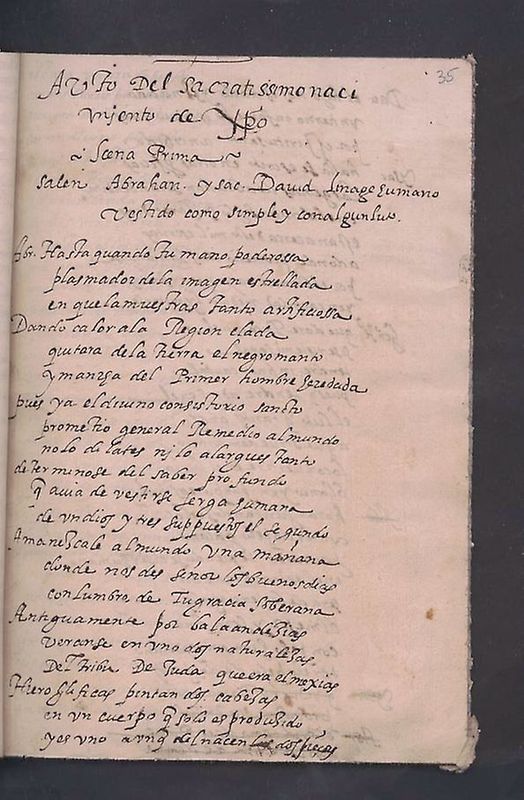 35
Auto Del sacratissimo naci
miento de Xpo
Scena Prima
salen Abrahan. y sac. David linage humano
vestido como simple y con algun luto.
Abr. Hasta quando tu mano poderossa
plasmador de la imagen estrellada
en que la muestras tanto artificiossa
Dando calor a la Region elada
quitara de la tierra el negro manto
y manzha del Primer hombre heredada
pues ya el divino consistorio sancto
prometio general Remedio al mundo
no lo delates ni lo alargues tanto
determinose del saber profundo
q avia de vestirse jerga humana
de un dios y tres suppuestos el segundo
Amanezcale al mundo una mañana
donde nos des señor los buenos dias
con lumbre de Tu gracia soberana
Antiguamente por
veranse en uno dos naturalezas
Del Tribu De Juda que era el mexias
Hieroglificas pintan dos cabezas
en un cuerpo q solo es produzido
y es uno aunq del nacen dos piezas